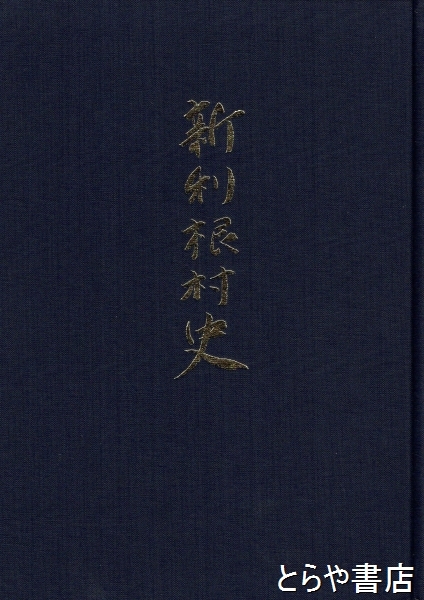 新利根村史
とらや書店